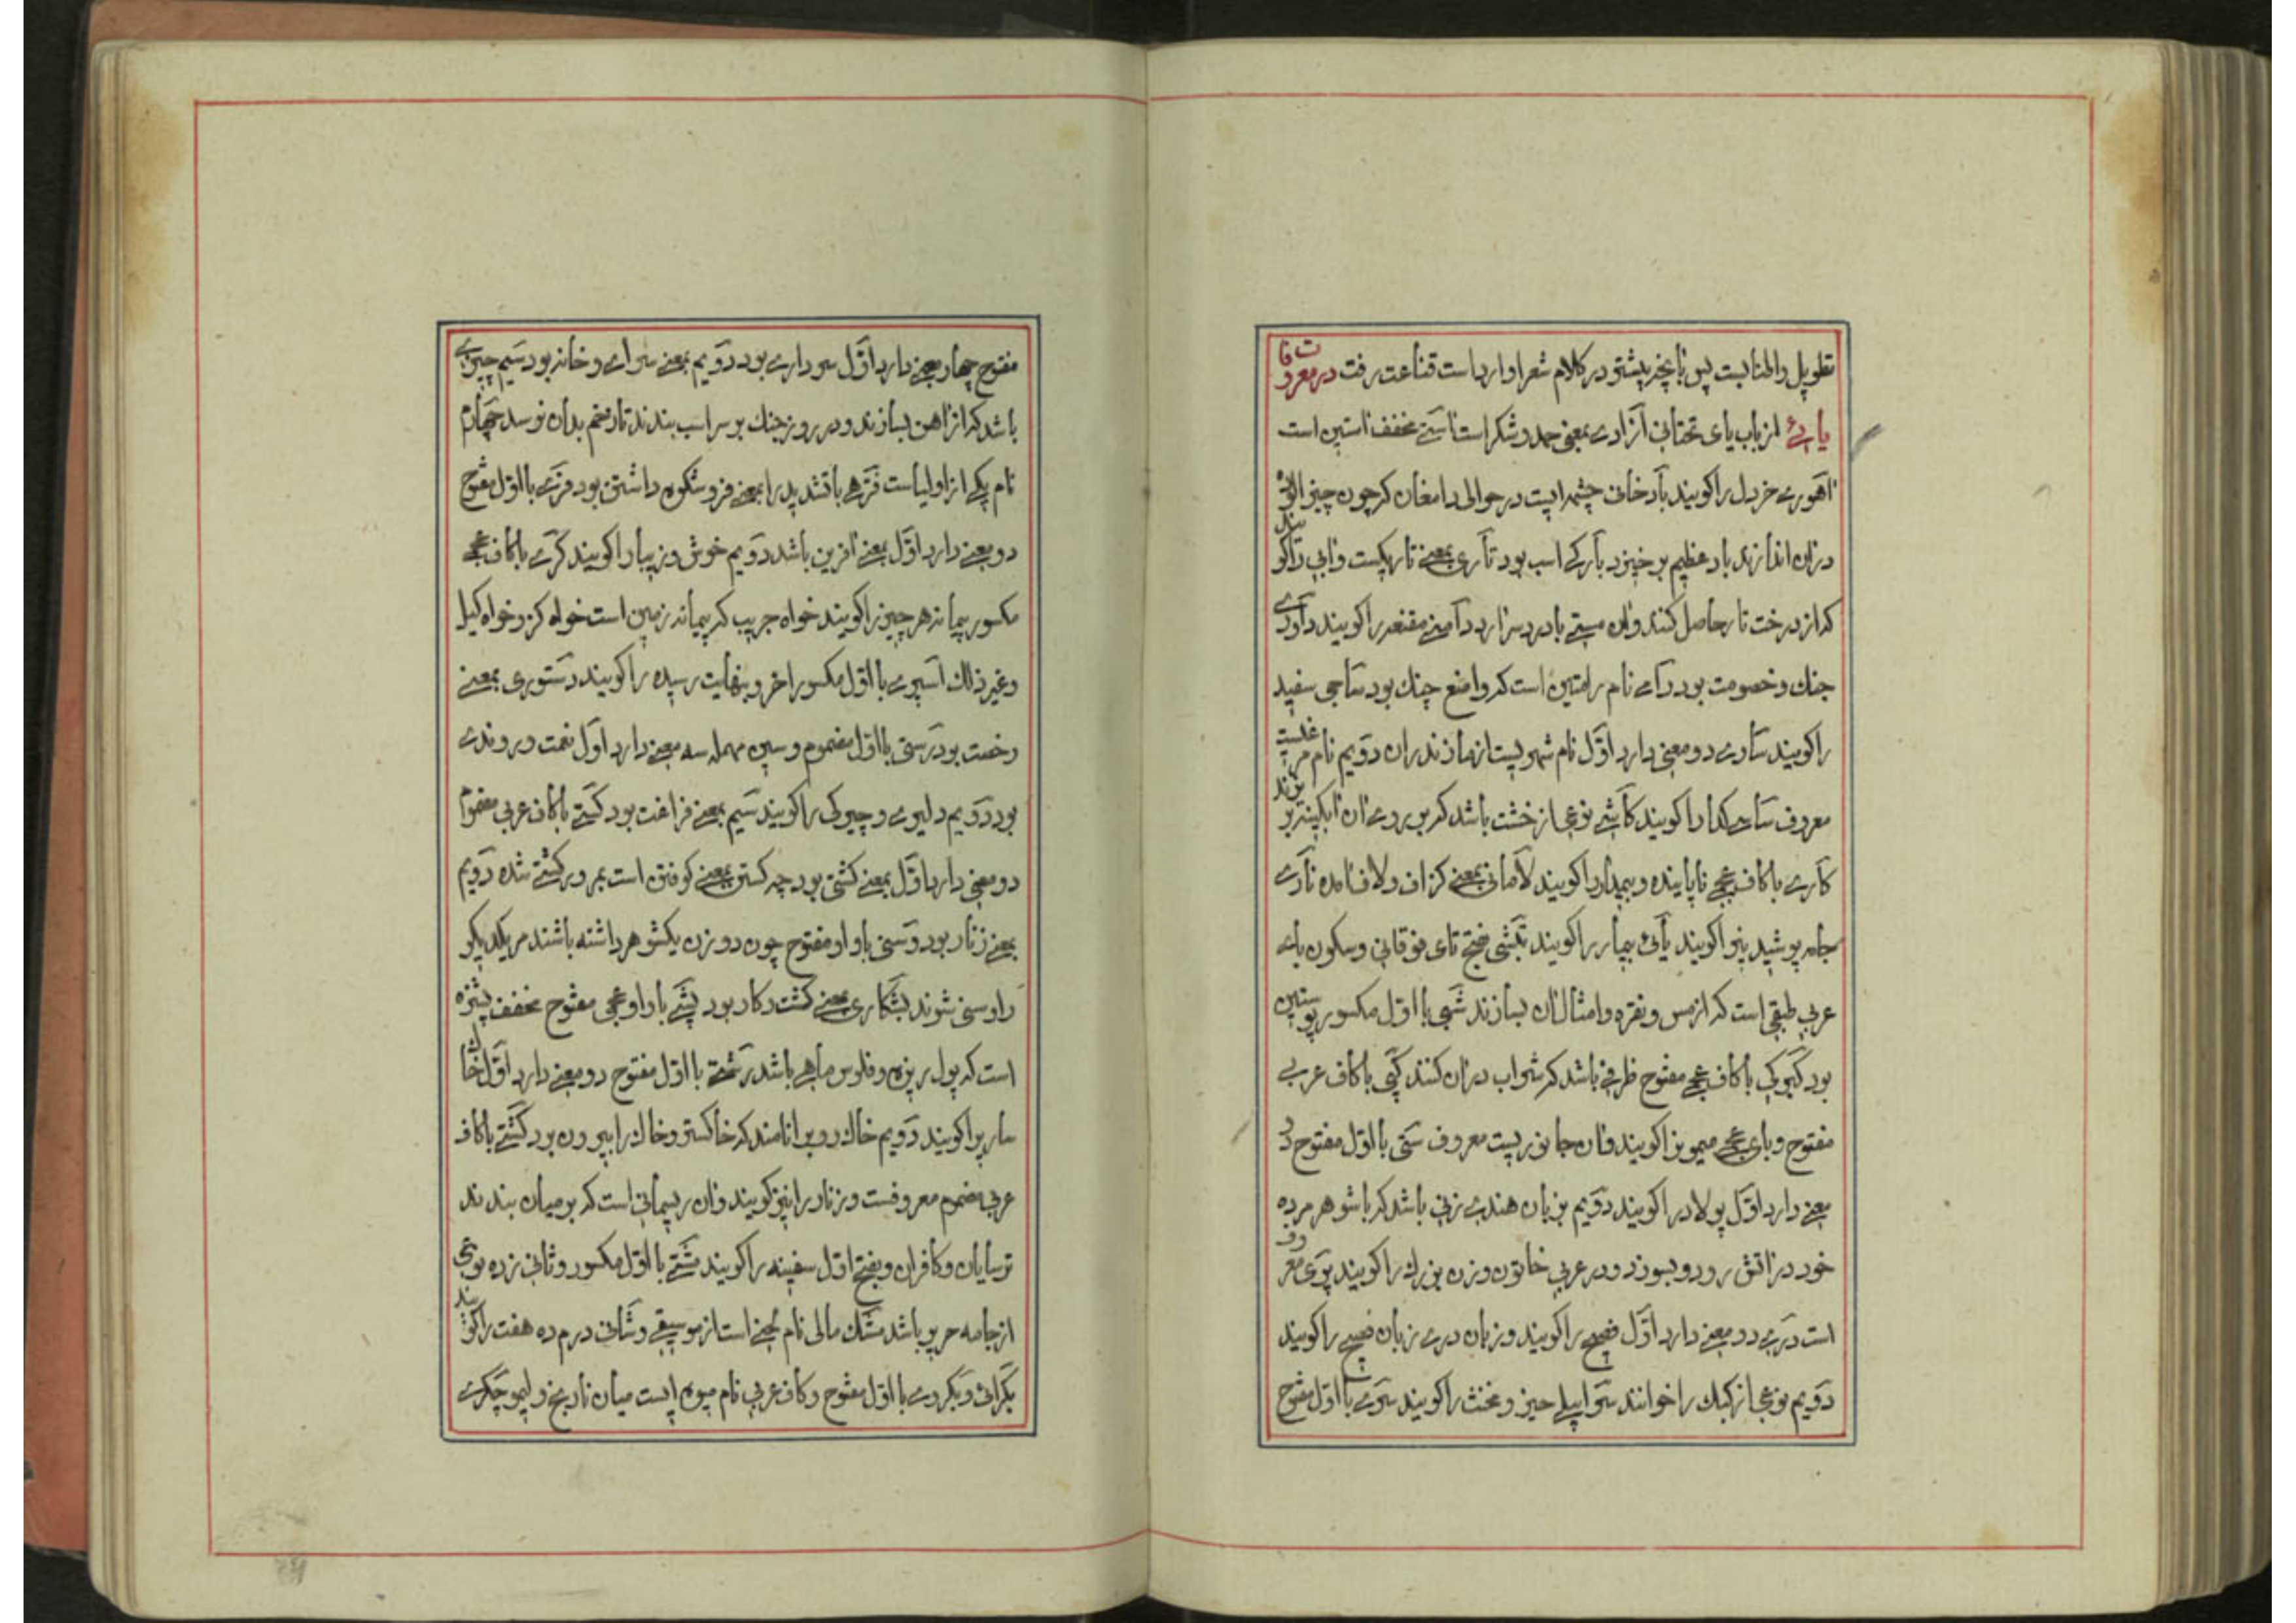 تطویل والمنابست پس بآنچه بیشتر در کلام شعرا وارد است قناعت رفت در معروفات
یائی از باب یای تحتانی آزادی بمعنی حمد و شکر است آستی مخفف آستین است
آهوری خردل را گویند بادخانی چشمه ایست در حوالی دامغان که چون چیز آلوده
در آن اندازند باد عظیم برخیزد بارگی اسب بود تاری بمعنی تاریکست و آبی را گویند
که از درخت تار حاصل کنند و آن مستی بادرد سر آرد دامنی مقنعه را گویند داوری
جنك و خصومت بود رامی نام رامتین است که واضع چنك بود ساجی سفید
را گویند ساری دو معنی دارد اول نام شهریست از مازندران دویم نام مرغیست
معروف ساسی گدا را گویند کاشی نوعی از خشت باشد که بر روی آن آبگینه ریزند
کاری با کاف عجمی ناپاینده و بیمدار را گویند لامانی بمعنی گزاف و لاف آمده ناری
جامه پوشیدنی را گویند یائی بیمار را گویند تبشی بفتح تای فوقانی و سکون بای
عربی طبقی است که از مس و نقره و امثال آن بسازند شبی با اول مکسور پوستین
بود کبوکی با کاف عجمی مفتوح ظرفی باشد که شراب در آن کنند کپی با کاف عربی
مفتوح و بای عجمی میمون را گویند و آن جانوریست معروف ستی با اول مفتوح دو
معنی دارد اول پولاد را گویند دویم بزبان هندی زنی باشد که با شوهر مرده
خود در آتش رود و بسوزد و در عربی خاتون و زن بزرك را گویند پوی معروف
است دری دو معنی دارد اول فصیح را گویند و زبان دری زبان فصیح را گویند
دویم نوعی از کبك را خوانند سراییلی حیز و مخنث را گویند سری با اول مفتوح
مفتوح چهار معنی دارد اول سرداری بود دویم بمعنی سرای و خانه بود سیم چیزی
باشد که از آهن بسازند و در روز جنك بر سر اسب بندند تا زخم بدان نرسد چهارم
نام یکی از اولیاست فرهی با تشدید را بمعنی فر و شکوه داشتن بود فری با اول مفتوح
دو معنی دارد اول بمعنی آفرین باشد دویم خوش و زیبا را گویند کری با کاف عجمی
مکسور پیمانه هر چیز را گویند خواه جریب که پیمانه زمین است خواه کز و خواه کیل
و غیر ذلك اسپری با اول مکسور آخر و بنهایت رسیده را گویند دستوری بمعنی
رخصت بود رستی با اول مضموم و سین مهمله سه معنی دارد اول نعمت و روزی
بود دویم دلیری و چیرگی را گویند سیم بمعنی فراغت بود کستی با کاف عربی مضموم
دو معنی دارد اول بمعنی کشتی بود چه کستن بمعنی کوفتن است بمرور کشتی شده دویم
بمعنی زنار بود وسنی با واو مفتوح چون دو زن یکشوهر داشته باشند مر یکدیگر
را وسنی شوند بشکاری بمعنی کشت و کار بود پشی با را و عجمی مفتوح مخفف پشیزه
است که پول ریزه و فلوس ماهی باشد رشتی با اول مفتوح دو معنی دارد اول خاك
سار را گویند دویم خاك روب را نامند که خاکستر و خاك را بیرون برد کشتی با کاف
عربی مضموم معروفست و زنار را نیز گویند و آن ریسمانی است که بر میان بندند
ترسایان و کافران و بفتح اول سفینه را گویند مشتی با اول مکسور و ثانی زده نوعی
از جامه حریر باشد مشك مالی نام لحنی است از موسیقی و شانی درم ده هفت را گویند
بکرائی و بکروی با اول مفتوح و کاف عربی نام میوه ایست میان نارنج و لیمو چکری